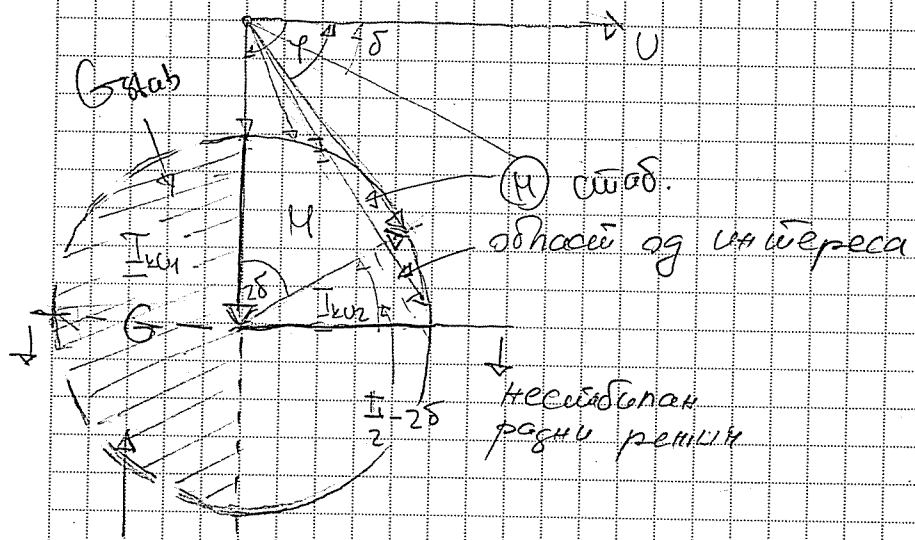 U
φ
δ
Gstab
M стаб.
област од интереса
M
I
Iкс1
2δ
Iкс2
G
π/2 - 2δ
нестабилан
радни режим